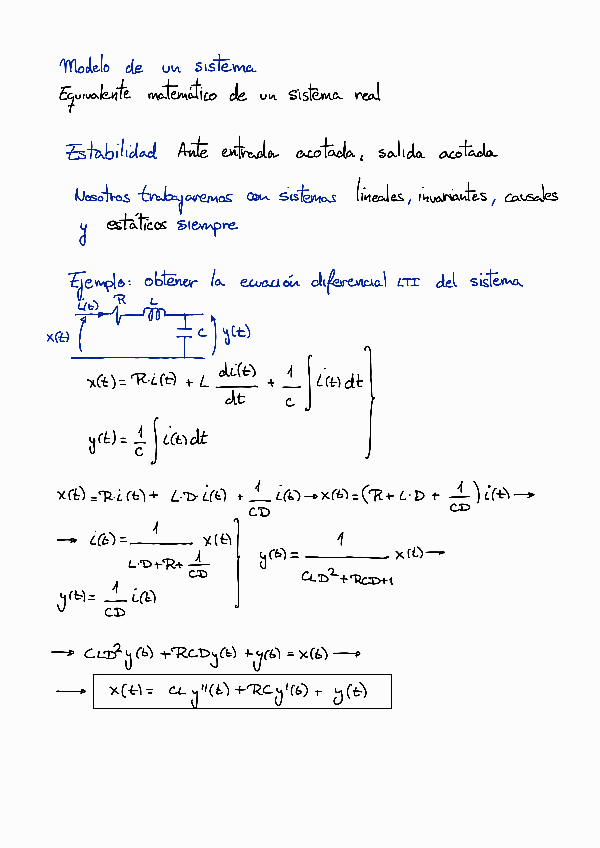 Modelo de un sistema
Equivalente matemático de un sistema real
Estabilidad Ante entrada acotada, salida acotada
Nosotros trabajaremos con sistemas lineales, invariantes, causales
y estáticos siempre
Ejemplo: obtener la ecuación diferencial LTI del sistema
i(t) R L
x(t) C y(t)
x(t) = R·i(t) + L di(t)/dt + 1/C ∫ i(t) dt
y(t) = 1/C ∫ i(t) dt
x(t) = R·i(t) + L·D·i(t) + 1/CD i(t) → x(t) = (R + L·D + 1/CD) i(t) →
→ i(t) = 1/(L·D + R + 1/CD) x(t)
y(t) = 1/CD i(t)
y(t) = 1/(CLD² + RCD + 1) x(t) →
→ CLD² y(t) + RCD y(t) + y(t) = x(t) →
→ x(t) = CL y''(t) + RC y'(t) + y(t)